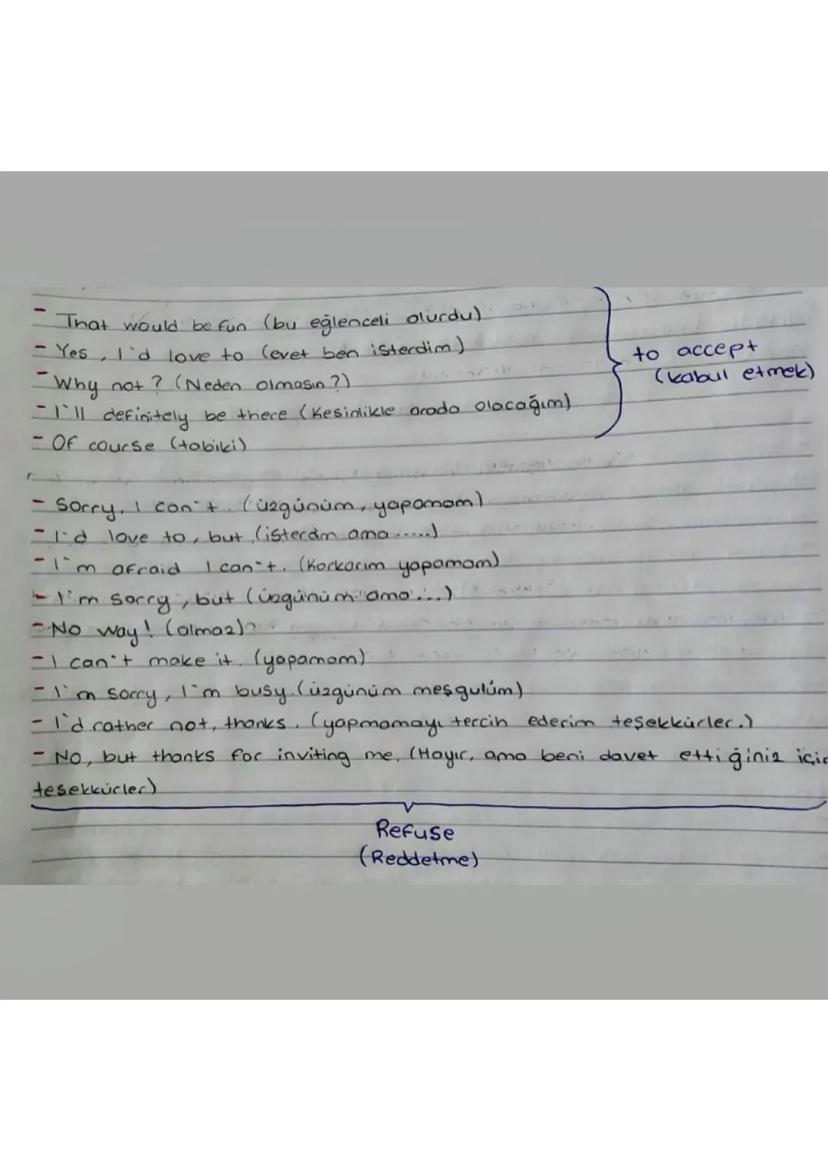 - That would be fun (bu eğlenceli olurdu)
- Yes, I'd love to (evet ben isterdim)
to accept
- Why not? (Neden olmasın?)
(kabul etmek)
- I'll definitely be there (Kesinlikle orada olacağım)
- Of course (tabiki)
- Sorry, I can't. (üzgünüm, yapamam)
- I'd love to, but (isterdm ama .....)
- I'm afraid I can't. (Korkarım yapamam)
- I'm sorry, but (üzgünüm ama...)
- No way! (olmaz)
- I can't make it. (yapamam)
- I'm sorry, I'm busy (üzgünüm meşgulüm)
- I'd rather not, thanks. (yapmamayı tercih ederim teşekkürler.)
- No, but thanks for inviting me. (Hayır, ama beni davet ettiğiniz için
teşekkürler)
Refuse
(Reddetme)